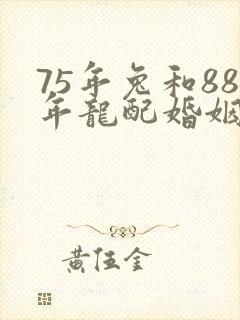 75年兔和88
年龍配婚姻
黄伍金